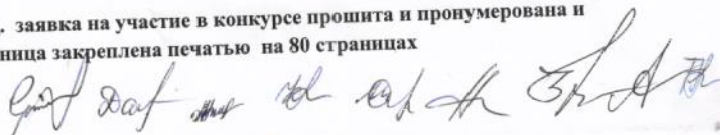 . заявка на участие в конкурсе прошита и пронумерована и
ница закреплена печатью на 80 страницах